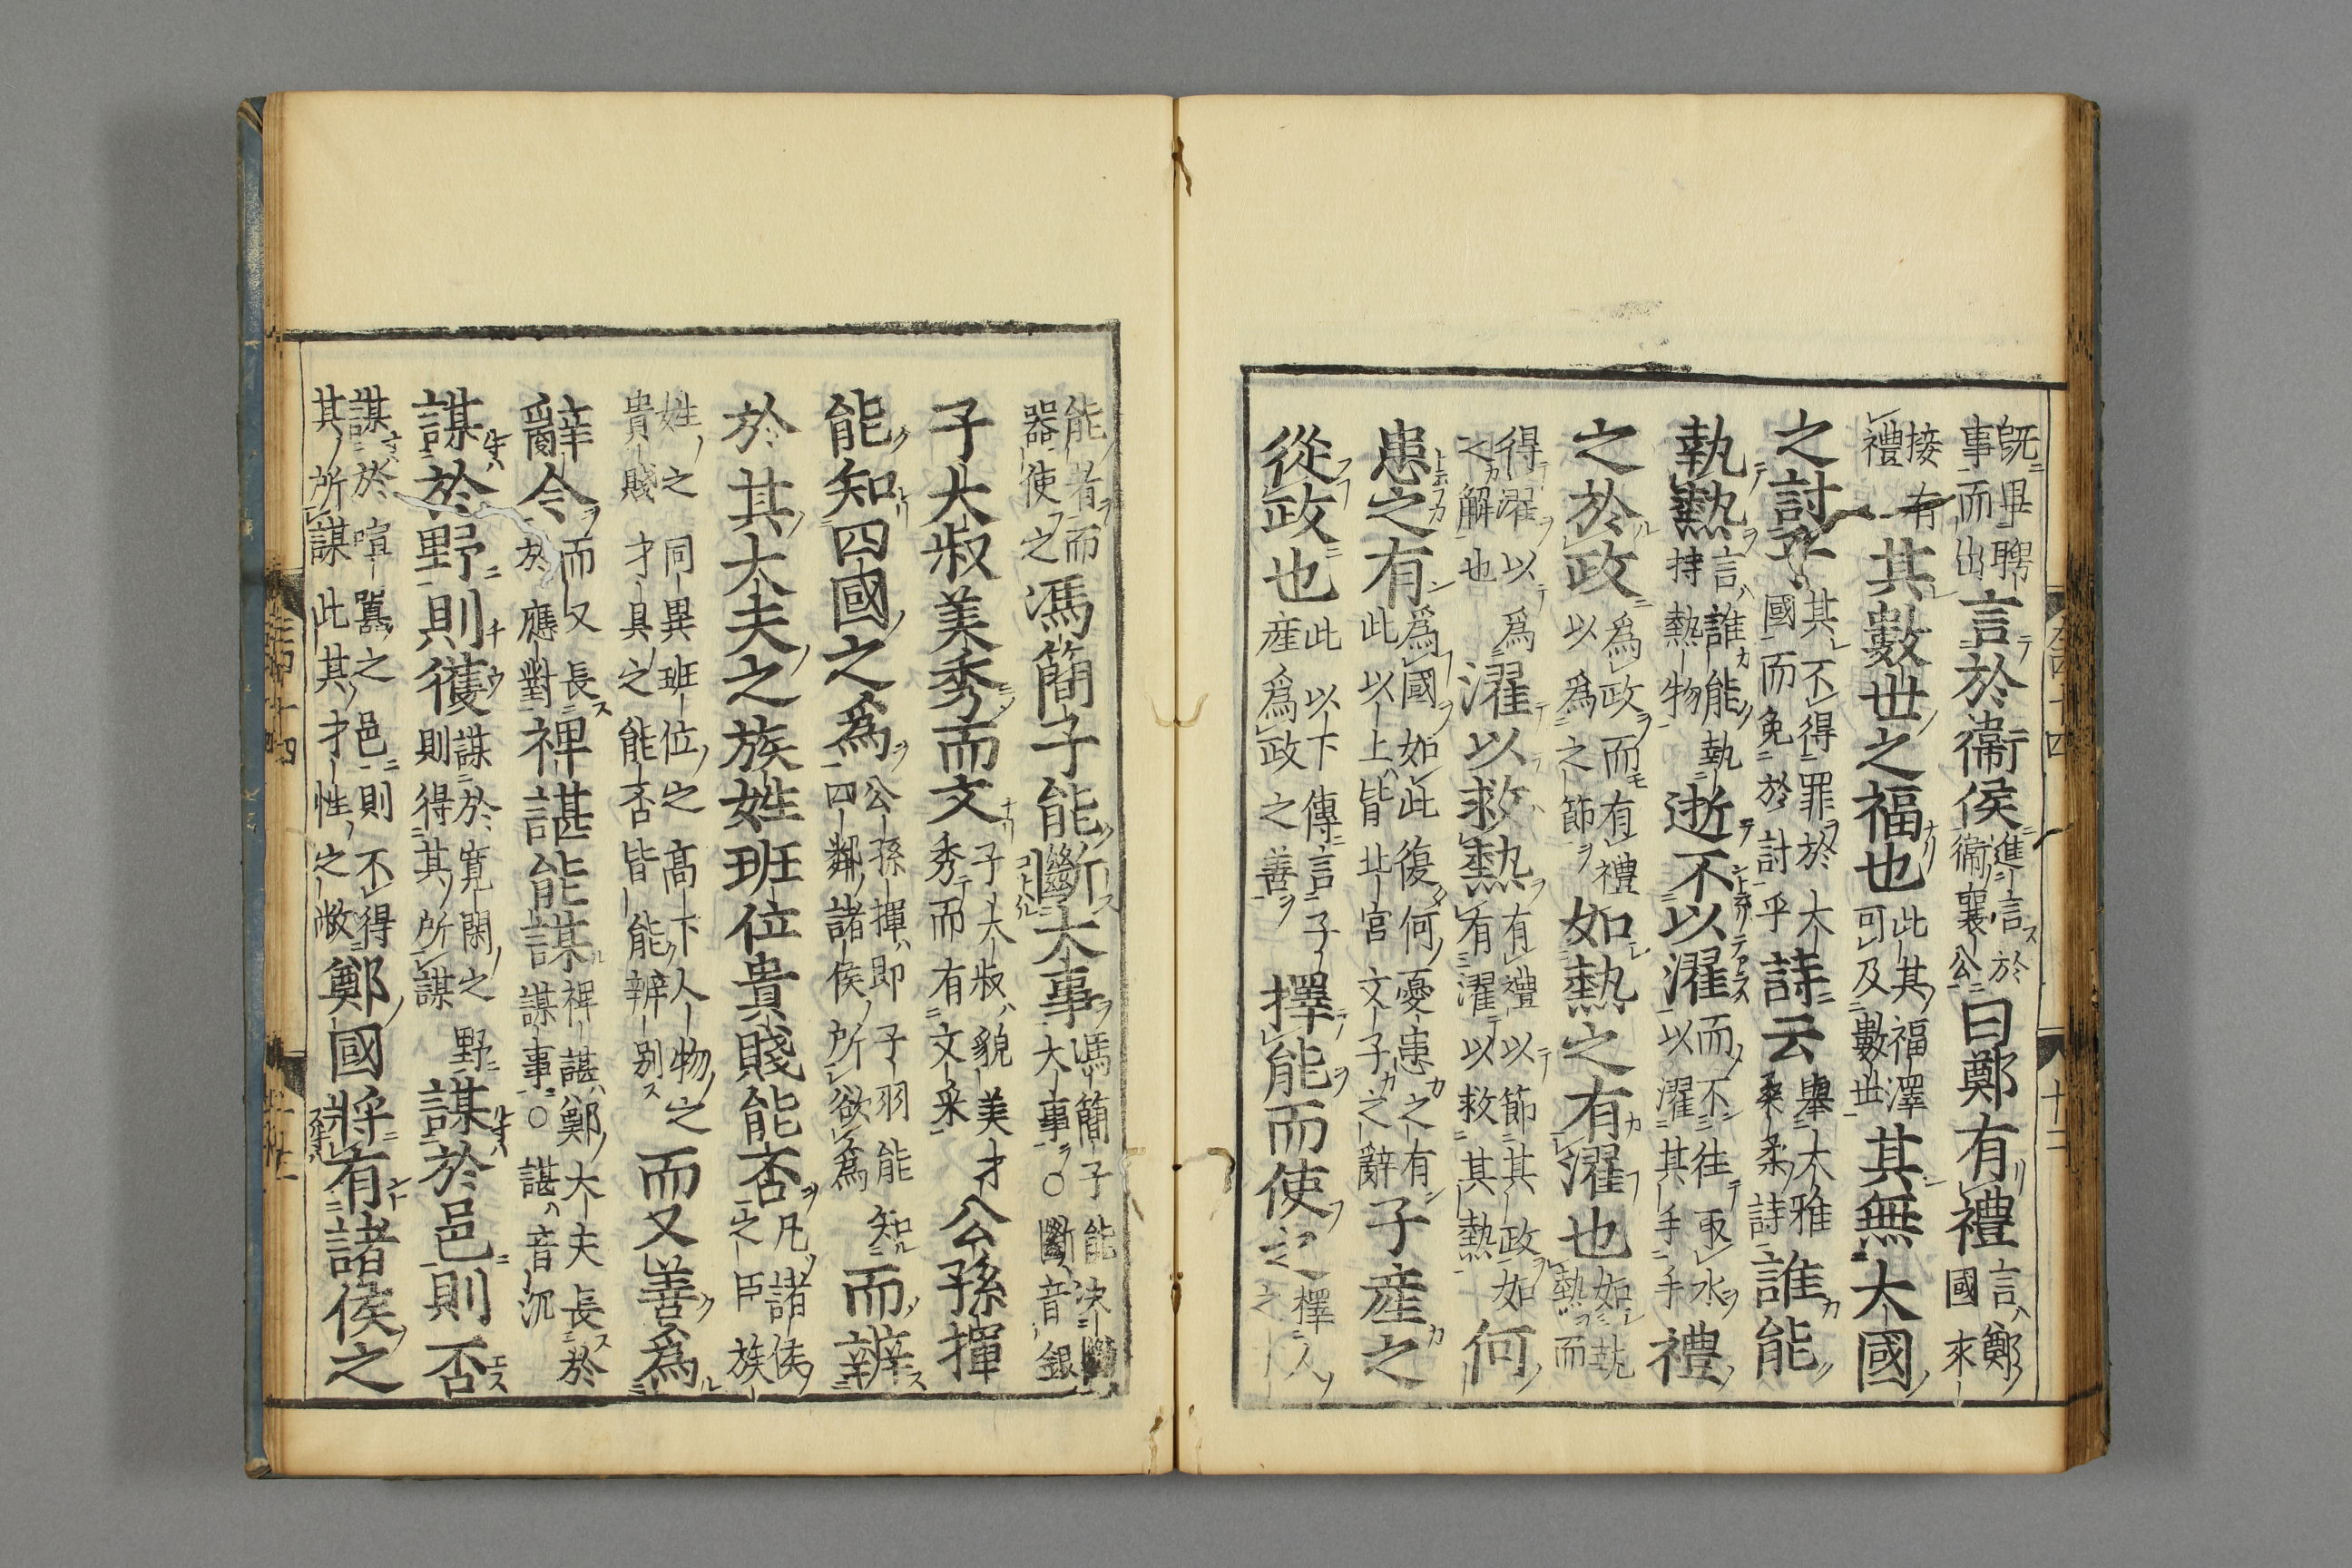 既畢聘事而出言於衞侯進言於衞襄公曰鄭有禮言鄭國來
接有禮其數世之福也此其福澤可及數世其無大國
之討乎其不得罪於大國而免於討乎詩云舉大雅桑柔詩誰能
執熱言誰能執持熱物逝不以濯而不往取水以濯其手手禮
之於政爲政而有禮以爲之節如熱之有濯也如執熱而
得濯以爲之解也濯以救熱有禮以節其政如有濯以救其熱何
患之有爲國如此復何憂患之有此以上皆北宮文子之辭子產之
從政也此以下傳言子產爲政之善擇能而使之擇人
能者而器使之馮簡子能斷大事馮簡子能決大事○斷音銀
子大叔美秀而文子大叔貌美才秀而有文采公孫揮
能知四國之爲公孫揮即子羽能知四鄰諸侯所欲爲而辨
於其大夫之族姓班位貴賤能否凡諸侯之臣族
姓之同異班位之高下人物之貴賤才具之能否皆能辨别而又善爲
辭令而又長於應對裨諶能謀裨諶鄭大夫長於謀事○諶音沉
謀於野則獲謀於寬閑之野則得其所謀謀於邑則否
謀於喧嚣之邑則不得其所謀此其才性之敝鄭國將有諸侯之